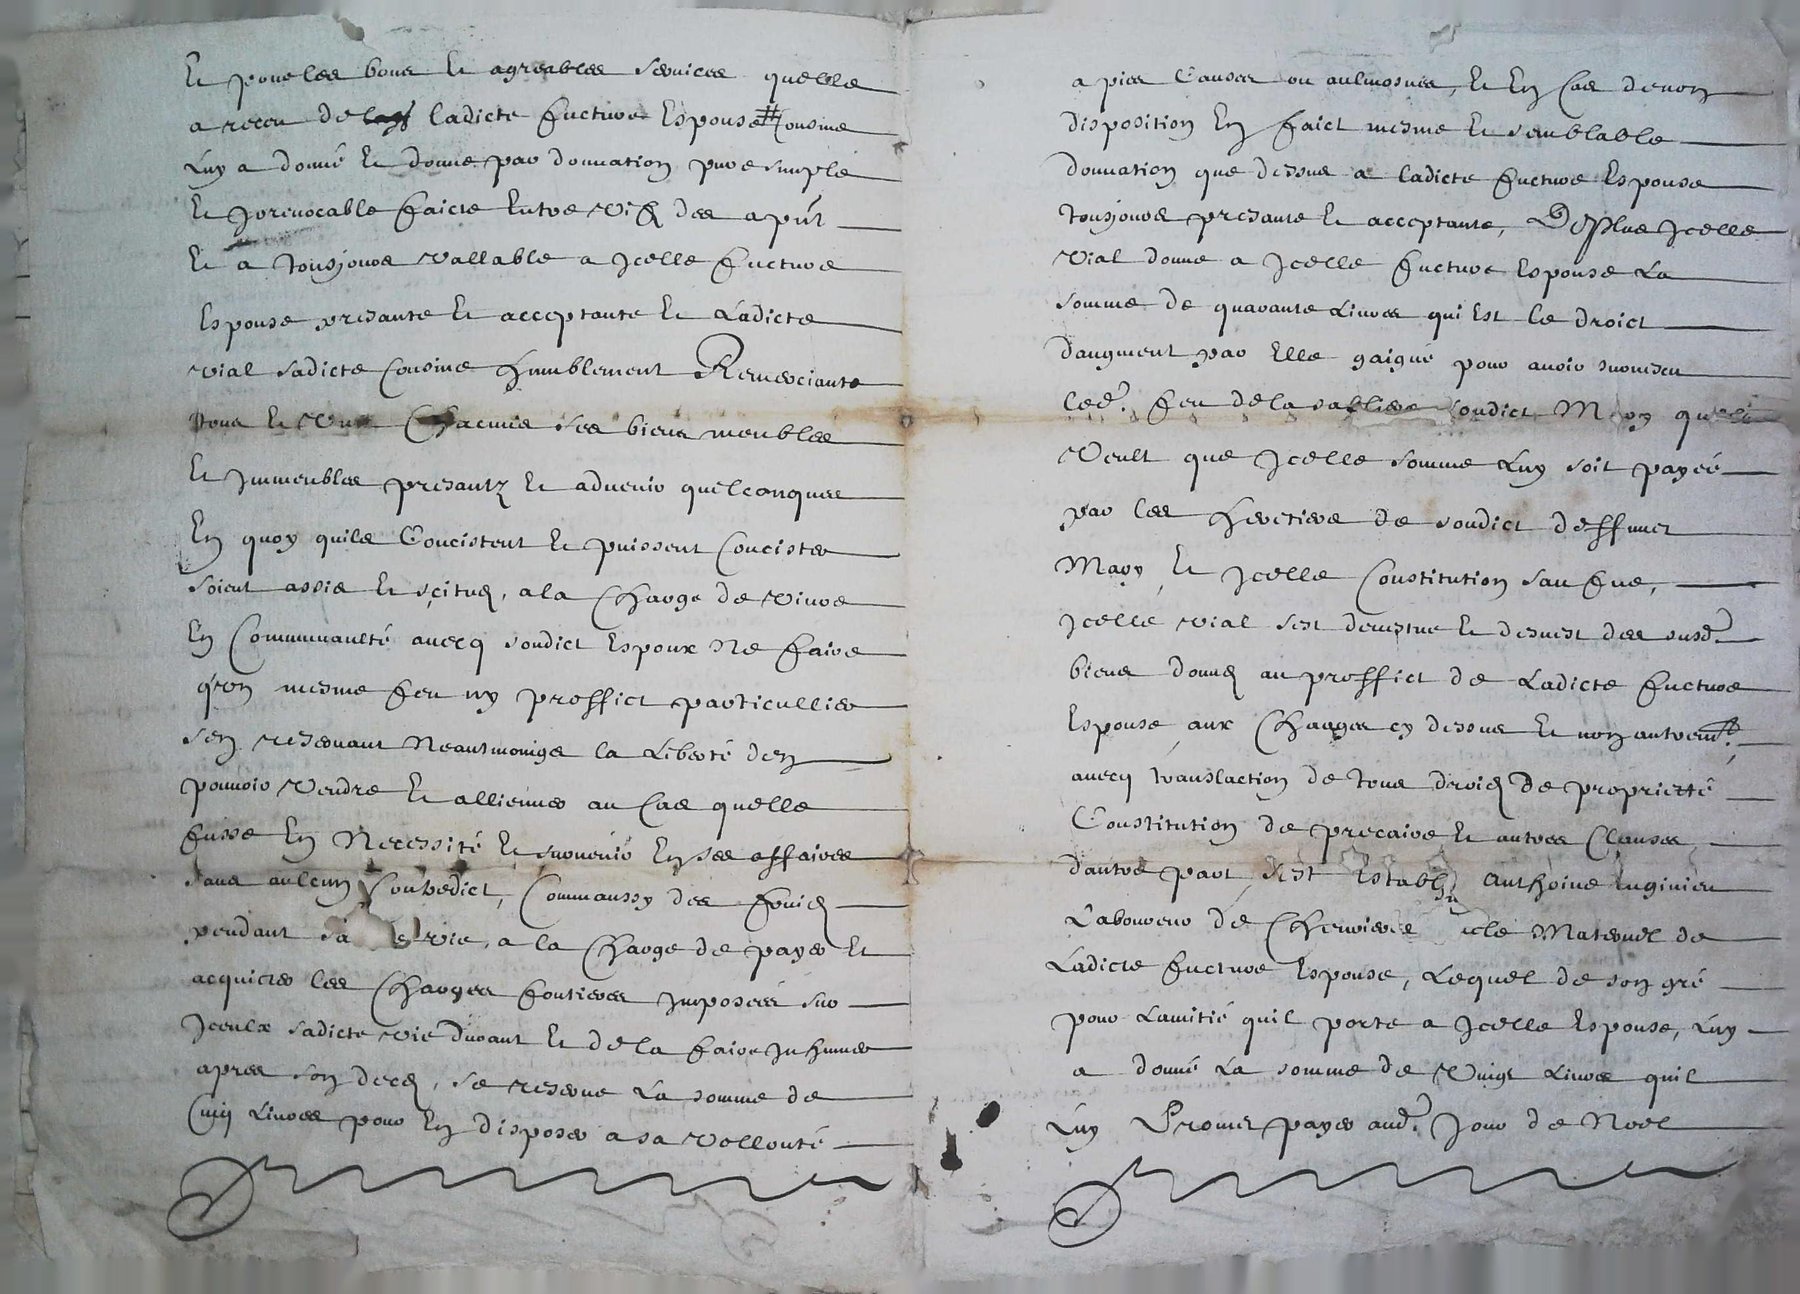 Et pour les bons et agreables services quelle
a receu de ladicte future Espouse # Cousine
Luy a donné et donne par donnation pure simple
et Jrrevocable faicte Entre vifz des apnt
et a tousjours vallable a Jcelle future
Espouse presante et acceptante et Ladicte
vial sadicte Cousine humblement Remerciante
tous et Ung Chacuns ses biens meubles
et Jmmeubles presantz et advenir quelconques
En quoy quils Concistent et puissent Concister
soient assis et scituez, a la Charge de vivre
En Communaulté avecq sondict Espoux Ne faire
q'un mesme feu ny proffict particullier
sen reservant Neantmoings la Liberté den
pouvoir vendre et allienner au Cas quelle
fusse En Necessité et survenir En ses affaires
sans aulcun Contredict, Comm'aussy des fruictz
pendant sa vie, a la Charge de payer et
acquicter les Charges fontieres Jmposées sur
Jceulx sadicte vie durant et de la faire Jnhumer
apres son decez, se reserve La somme de
Cinq Livres pour En disposer a sa vollonté
a pies Causes ou aulmosnes, et En Cas de non
disposition En faict mesme et semblable
donnation que dessus a ladicte future Espouse
tousjours presante et acceptante, De plus Jcelle
vial donne a Jcelle future Espouse La
somme de quarante Livres qui Est le droict
d'augment par Elle gaigné pour avoir survescu
led. feu de la sabliere sondict Mary
Veult que Jcelle somme Luy soit payée
par les heretiers de sondict deffunct
Mary et Jcelle Constitution saufve,
Jcelle vial s'est demestue et desvest des susd.
biens donnez au proffict de Ladicte future
Espouse aux Charges cy dessus et non autrem.
avecq translaction de tous droictz de proprietté
Constitution de precaire et autres Clauses
D'autre part s'est Estably Anthoine
Laboureur de Maternel de
Ladicte future Espouse, Lequel de son gré
pour L'amitié quil porte a Jcelle Espouse, Luy
a donné La somme de Vingt Livres quil
Luy Promet payer aud. Jour de Noel